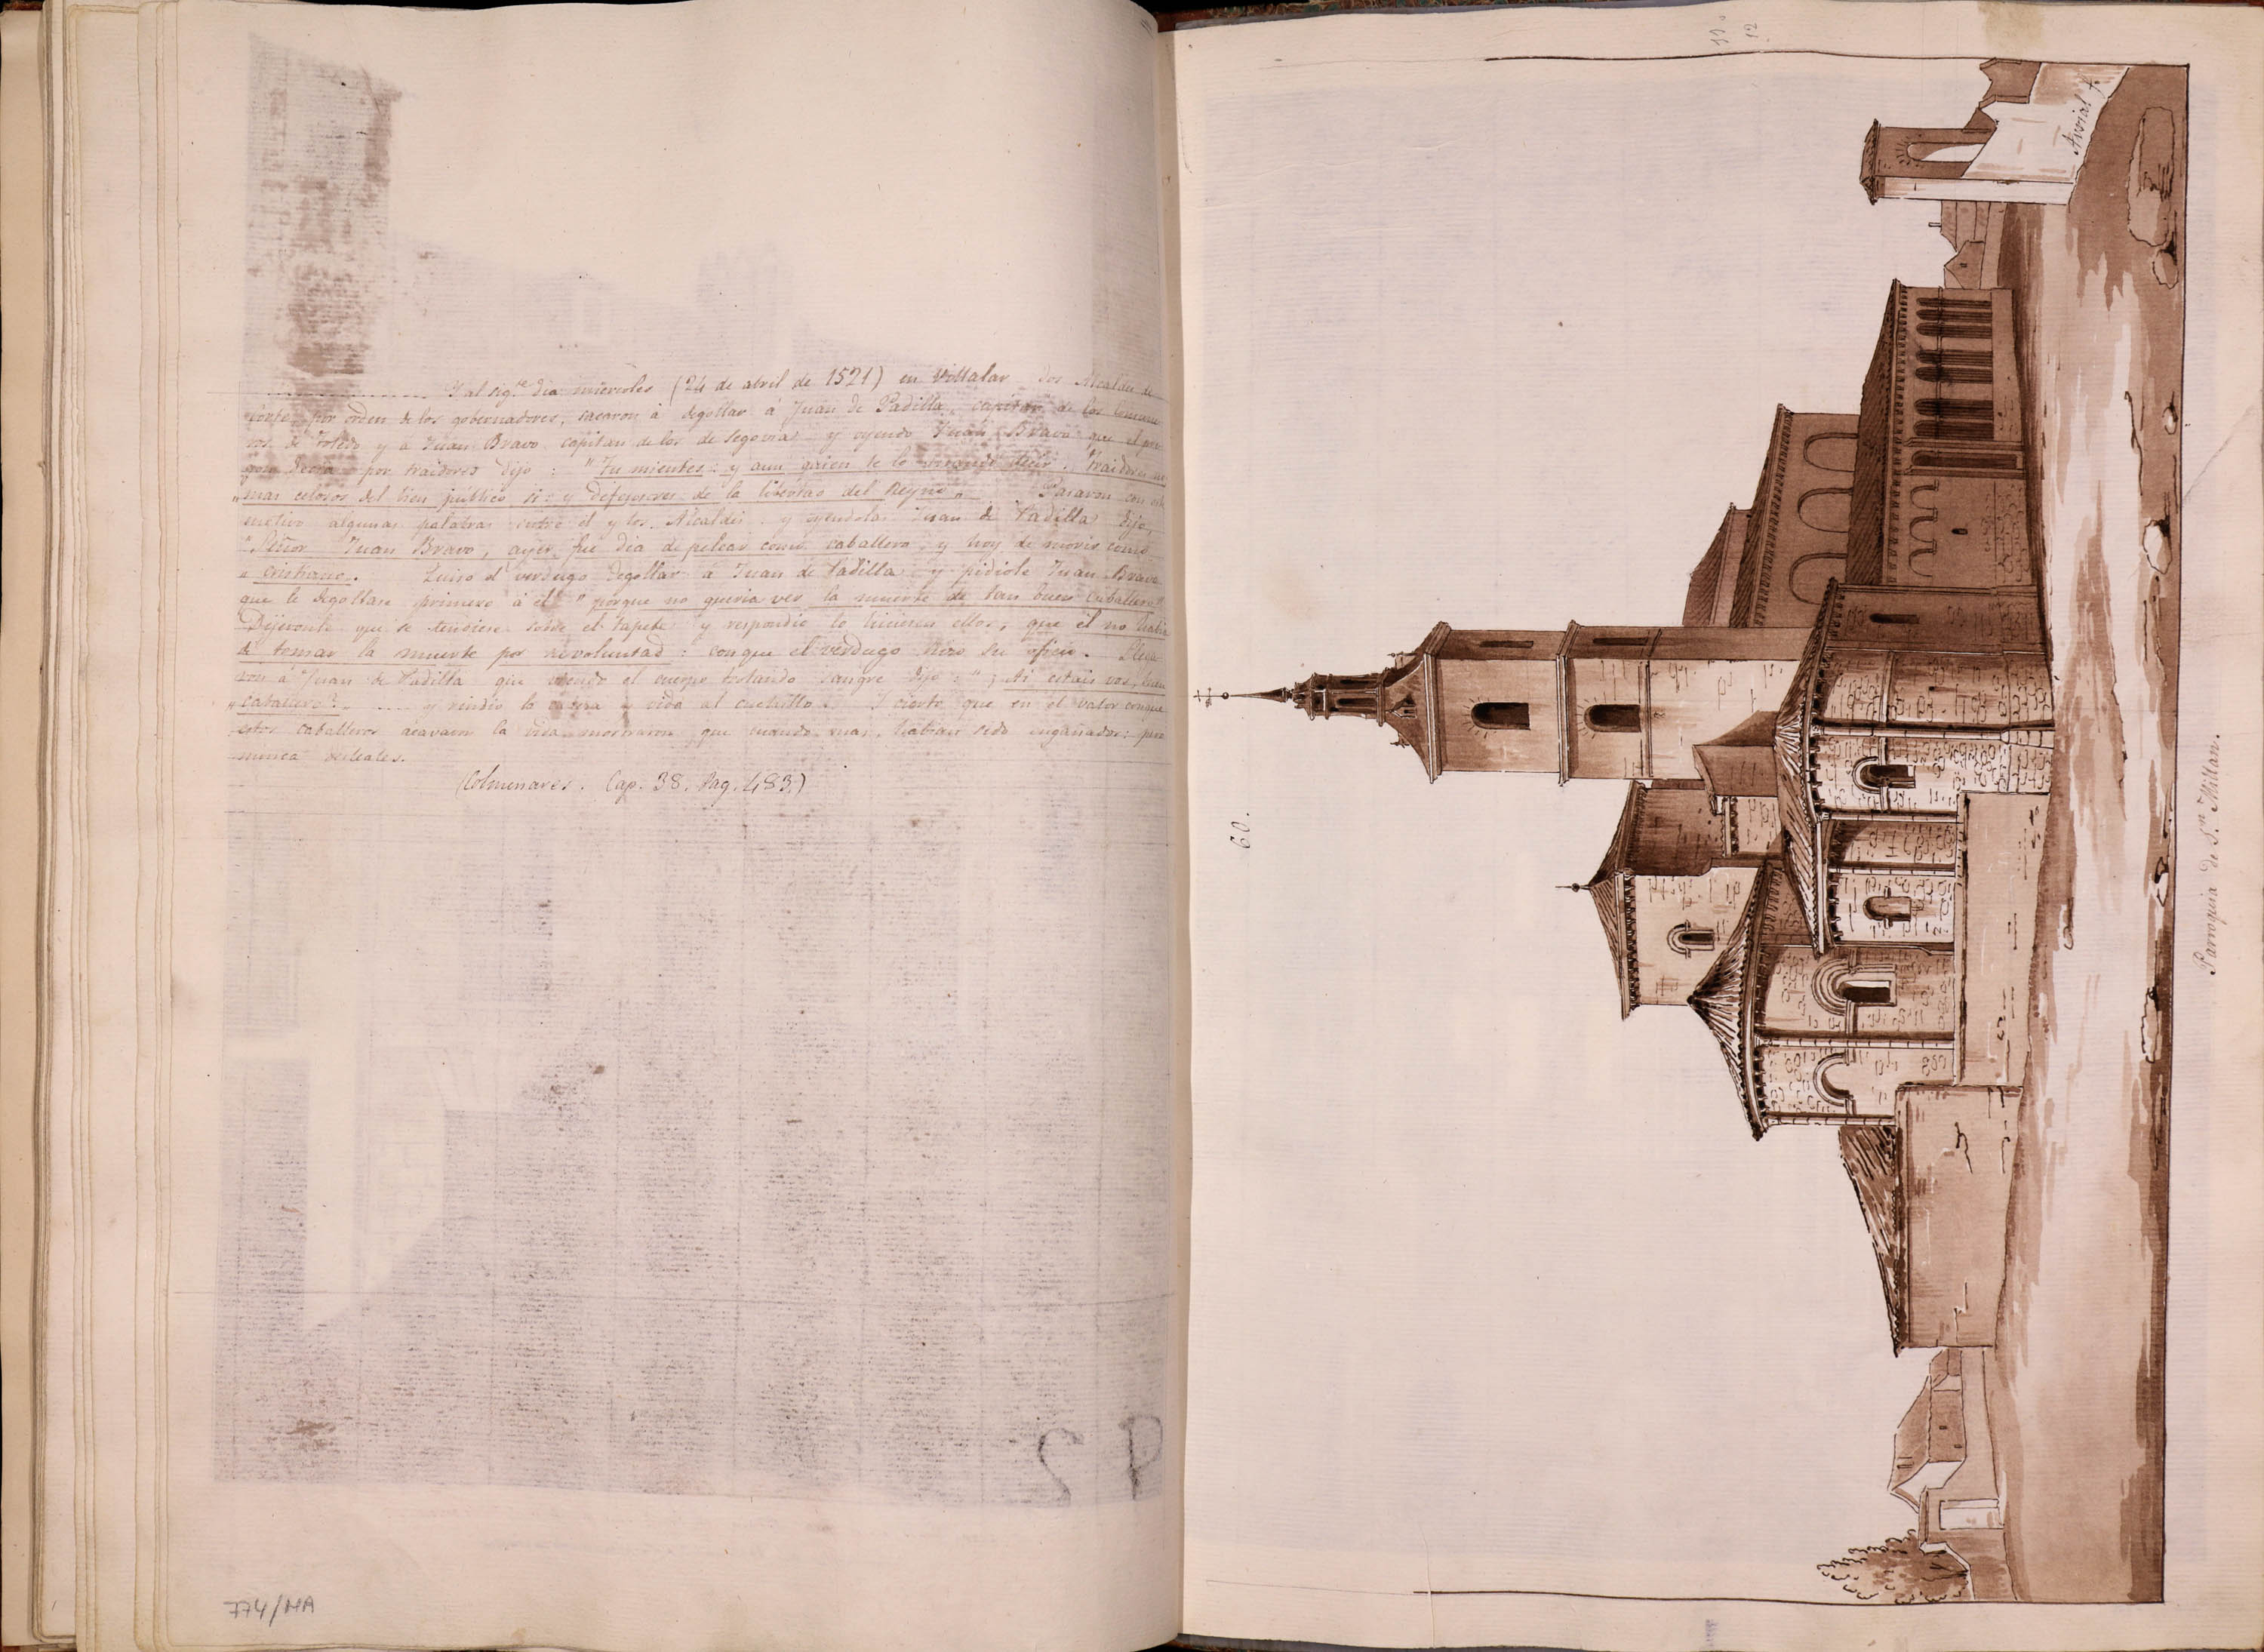 Y al sig.te dia miercoles (24 de abril de 1521) en Villalar dos Alcaldes de
corte, por orden de los gobernadores, sacaron à degollar á Juan de Padilla capitan de los comune
ros de Toledo y á Juan Bravo capitan de los de Segovia y oyendo Juan Bravo que el pre
gon decia por traidores dijo: "Tu mientes: y aun quien te lo mando decir. Traidores no
"mas celosos del bien publico si: y defensores de la libertad del Reyno". Pasaron con este
motivo algunas palabras entre el y los Alcaldes y oyendolas Juan de Padilla dijo,
"Señor Juan Bravo, ayer fue dia de pelear como caballero, y hoy de morir como
" cristiano. Quiso el verdugo degollar á Juan de Padilla y pidiole Juan Bravo
que le degollase primero á él "porque no queria ver la muerte de tan buen caballero"
Dijeronle que se tendiese sobre el tapete y respondio lo hiciesen ellos, que él no habia
de tomar la muerte por su voluntad: conque el verdugo hizo su oficio. Llega
ron á Juan de Padilla que viendo el cuerpo brotando sangre dijo: "¿Ai estais vos, buen
"caballero? ..... y rindio la cabeza y vida al cuchillo. Y cierto que en el valor conque
estos caballeros acavaron la vida mostraron que cuando mas, habian sido engañados: pero
nunca desleales.
(Colmenares. Cap. 38. Pag. 483.)
774/MA
60.
12
Avrial f.
Parroquia de S.n Millan.